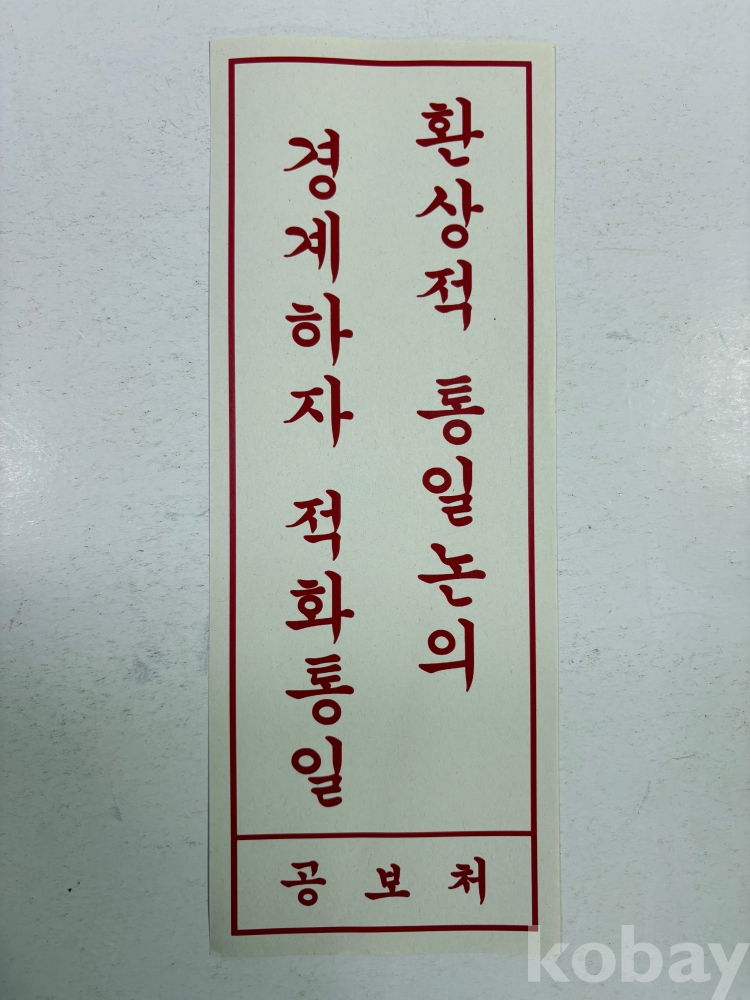 환상적 통일논의
경계하자 적화통일
공보처
kobay